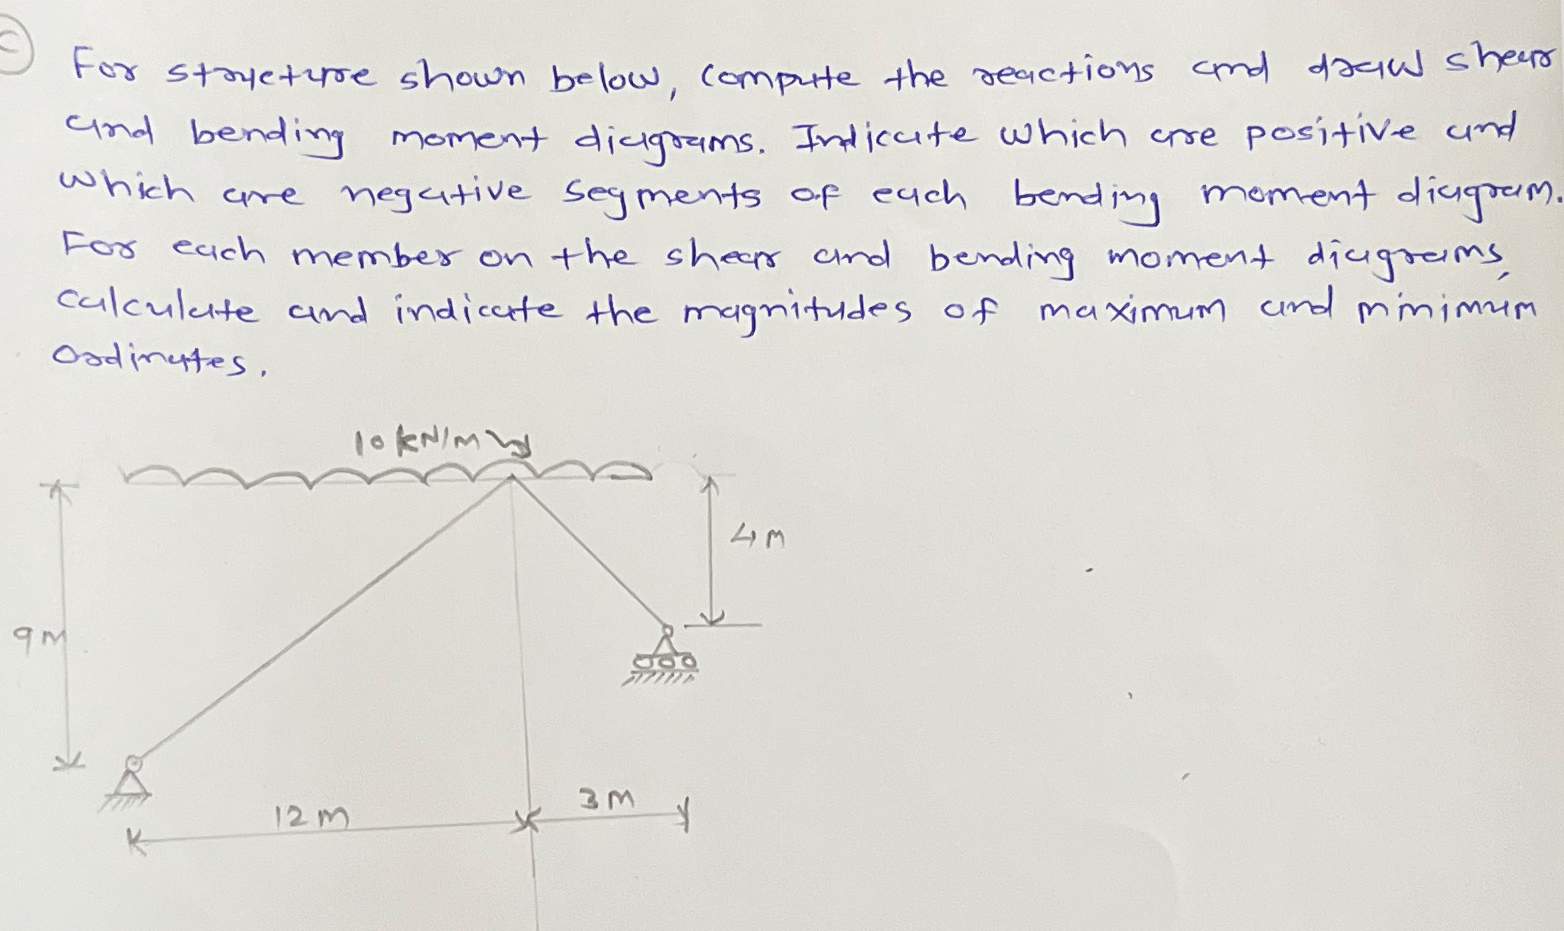 C
For structure shown below, compute the reactions and draw shear
and bending moment diagrams. Indicate which are positive and
which are negative segments of each bending moment diagram.
For each member on the shear and bending moment diagrams,
calculate and indicate the magnitudes of maximum and minimum
ordinates.
10 kN/m
4m
9m
12m
3m